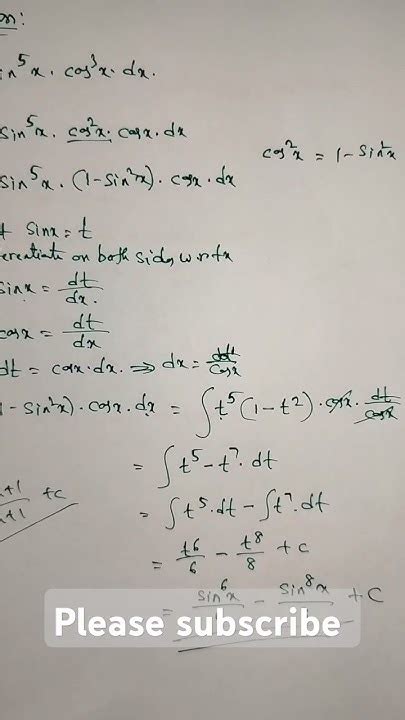 on:
in⁵x. cos³x. dx.
sin⁵x. cos²x. cosx. dx
cos²x = 1 - sin²x
sin⁵x. (1-sin²x). cosx. dx
t sinx = t
erentiate on both sides w.r.to x
sinx = dt/dx.
cosx = dt/dx
dt = cosx.dx. ⇒ dx = dt/cosx
1 - sin²x). cosx. dx = ∫t⁵(1-t²). cosx. dt/cosx
= ∫t⁵-t⁷. dt
= ∫t⁵.dt - ∫t⁷.dt
n+1/n+1 +c
= t⁶/6 - t⁸/8 + c
= sin⁶x - sin⁸x + C
Please subscribe